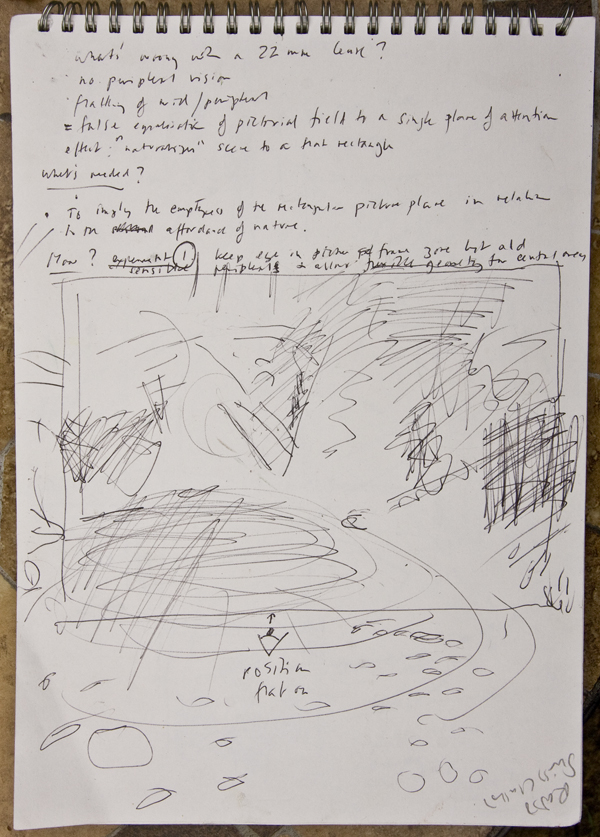 what's wrong with a 22 mm lense?
no peripheral vision
flatting of mid/peripheral
= false equalisation of pictorial field to a single plane of attention
effect: "naturalises" scene to a flat rectangle
what's needed?
• To imply the emptyness of the rectangular picture plane in relation
to the affordance of nature.
How? experiment 1 keep eye in picture frame zone but add
sensible peripheral & allow flexible geometry for central area
position
flat on